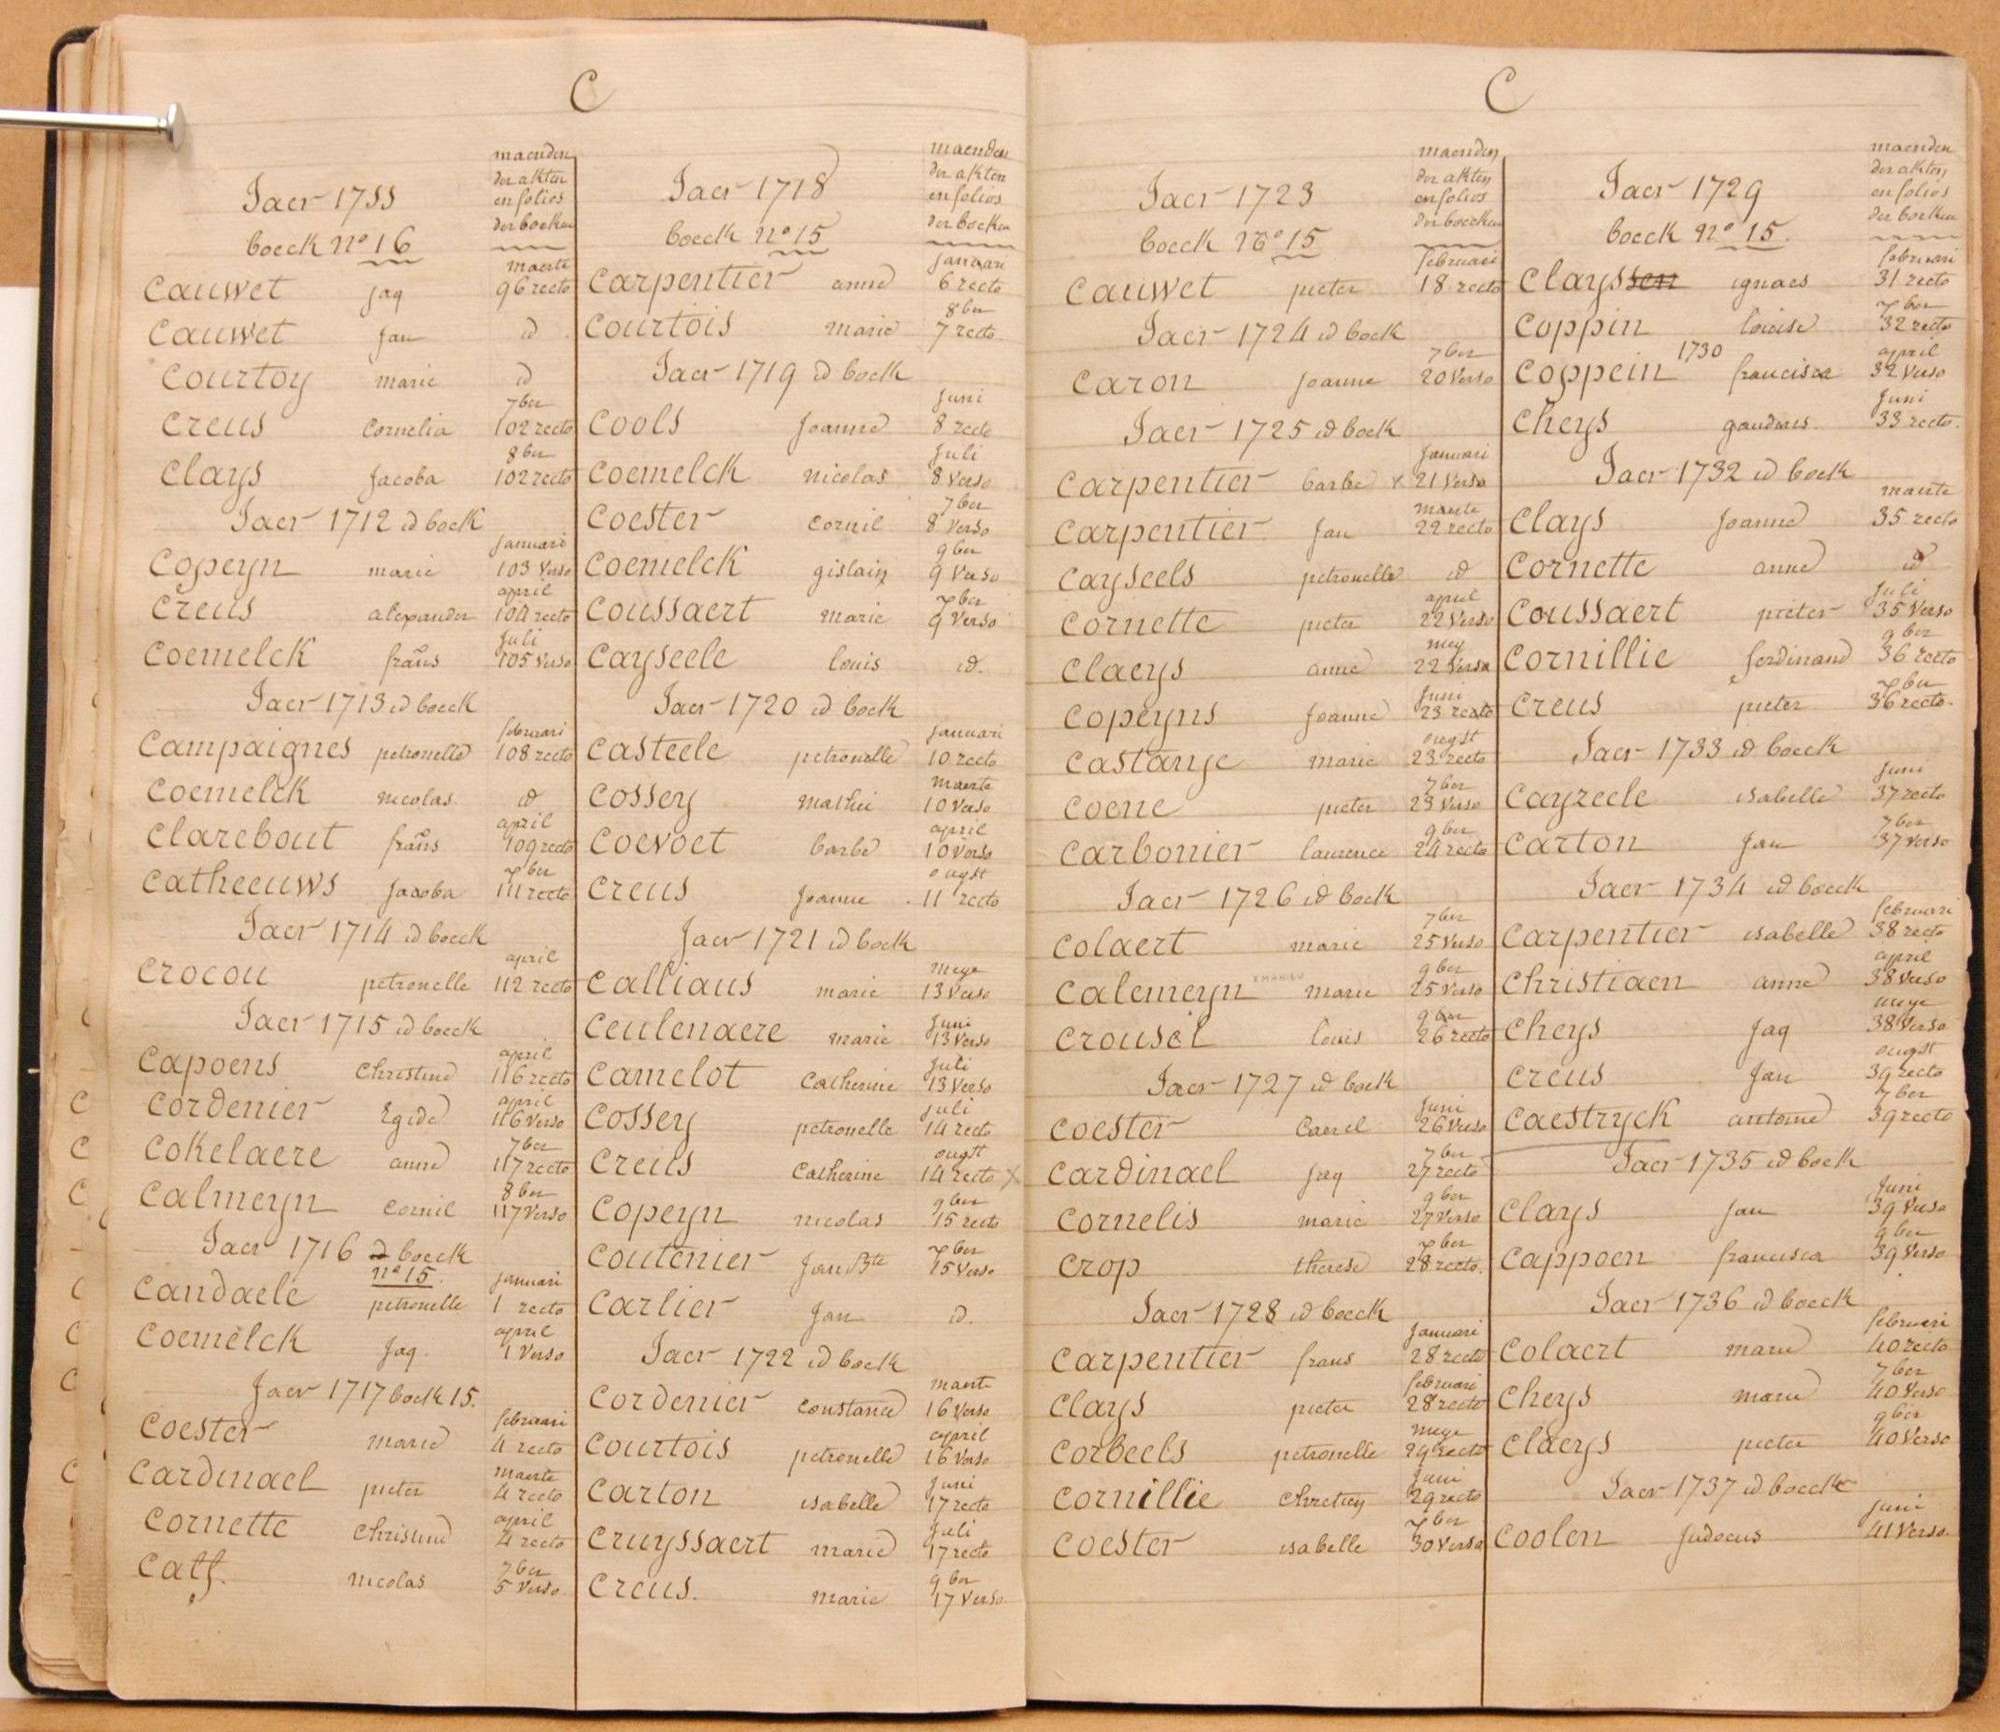 C
maenden
der akten
en folios
der boeken
Jaer 1711
boeck Nº 16
maerte
Cauwet jaq 96 recto
Cauwet jan id
Courtoy marie id
7ber
Creus Cornelia 102 recto
8ber
Clays Jacoba 102 recto
Jaer 1712 id boek
januari
Copeyn marie 103 Verso
april
Creus alexander 104 recto
Juli
Coemelck frans 105 Verso
Jaer 1713 id boeck
februari
Campaignes petronelle 108 recto
Coemelck nicolas id
april
Clarebout frans 109 recto
7ber
Catheeuws Jacoba 111 recto
Jaer 1714 id boeck
april
Crocou petronelle 112 recto
Jaer 1715 id boeck
april
Capoens Christine 116 recto
april
Cordenier Egide 116 Verso
7ber
Cokelaere anne 117 recto
8ber
Calmeyn Cornil 117 Verso
Jaer 1716 id boeck
nº 15
januari
Candaele petronelle 1 recto
april
Coemelck jaq. 1 Verso
Jaer 1717 boek 15.
februari
Coester marie 4 recto
maerte
Cardinael pieter 4 recto
april
Cornette Christine 4 recto
7ber
nicolas 5 Verso
maenden
der akten
en folios
der boeken
Jaer 1718
boeck Nº 15
januari
Carpentier anne 6 recto
8ber
Courtois marie 7 recto
Jaer 1719 id boeck
Juni
Cools Joanne 8 recto
Juli
Coemelck nicolas 8 Verso
7ber
Coester Cornil 8 Verso
9ber
Coemelck gislain 9 Verso
Coussaert marie 9 Verso
Cayseele louis id.
Jaer 1720 id boek
januari
Casteele petronelle 10 recto
maerte
Cossey mathii 10 Verso
april
Coevoet barbe 10 Verso
ougst
Creus Joanne 11 recto
Jaer 1721 id boek
meye
Calliaus marie 13 Verso
Juni
Ceulenaere marie 13 Verso
Juli
Camelot Catherine 13 Verso
juli
Cossey petronelle 14 recto
ougst
Creus Catherine 14 recto X
9ber
Copeyn nicolas 15 recto
Coutenier Jan Bte 15 Verso
Carlier Jan id.
Jaer 1722 id boeck
maerte
Cordenier Constance 16 Verso
april
Courtois petronelle 16 Verso
Juni
Carton isabelle 17 recto
Juli
Cruyssaert marie 17 recto
9ber
Creus. marie 17 Verso
C
maenden
der akten
en folios
der boeken
Jaer 1723
boeck Nº 15
februari
Cauwet pieter 18 recto
Jaer 1724 id boek
7ber
Caron Joanne 20 Verso
Jaer 1725 id boek
januari
Carpentier barbe x 21 Verso
maerte
Carpentier Jan 22 recto
Cayseels petronelle id
april
Cornette pieter 22 Verso
mey
Claeys anne 22 Verso
Juni
Copeyns Joanne 23 recto
ougst
Castange marie 23 recto
7ber
Coene pieter 23 Verso
9ber
Carbonier laurence 24 recto
Jaer 1726 id boek
7ber
Colaert marie 25 Verso
9ber
Calemeyn marie 25 Verso
9ber
Crousel louis 26 recto
Jaer 1727 id boek
Juni
Coester Carel 26 Verso
7ber
Cardinael jaq 27 recto
9ber
Cornelis marie 27 Verso
Crop therese 28 recto.
Jaer 1728 id boeck
Januari
Carpentier frans 28 recto
februari
Clays pieter 28 recto
meye
Corbeels petronelle 29 recto
Juni
Cornillie Chretien 29 recto
Coester isabelle 30 Verso
maenden
der akten
en folios
der boeken
Jaer 1729
boeck Nº 15.
februari
Clayssen ignaes 31 recto
7ber
Coppin louise 32 recto
1730
april
Coppein francisca 32 Verso
Juni
Cheys 33 recto.
Jaer 1732 id boek
maerte
Clays Joanne 35 recto
Cornette anne id
Juli
Coussaert pieter 35 Verso
9ber
Cornillie ferdinand 36 recto
Creus pieter 36 recto.
Jaer 1733 id boeck
Juni
Cayzeele isabelle 37 recto
7ber
Carton Jan 37 Verso
Jaer 1734 id boeck
februari
Carpentier isabelle 38 recto
april
Christiaen anne 38 Verso
meye
Cheys Jaq 38 Verso
ougst
Creus Jan 39 recto
7ber
Caestryck antoine 39 recto
Jaer 1735 id boek
Juni
Clays Jan 39 Verso
9ber
Cappoen francisca 39 Verso
Jaer 1736 id boeck
februari
Colaert marie 40 recto
7ber
Cheys marie 40 Verso
9ber
Claeys pieter 40 Verso
Jaer 1737 id boeck
Juni
Coolen Judocus 41 Verso.